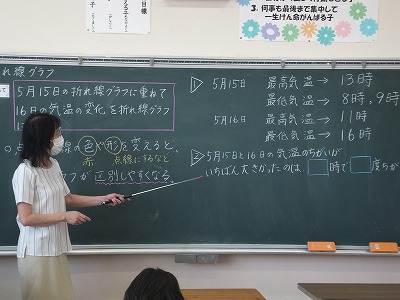 3. 何事も最後まで集中して
一生けん命がんばる子
れ線グラフ
5月15日の折れ線グラフに重ねて
16日の気温の変化を折れ線グラフ
線の色や形を変えると、
赤 点線にするなど
が区別しやすくなる。
1 5月15日 最高気温→ 13時
最低気温→ 8時,9時
5月16日 最高気温→ 11時
最低気温→ 16時
2 5月15日と16日の気温のちがいが
いちばん大きかったのは□時で□度ちが